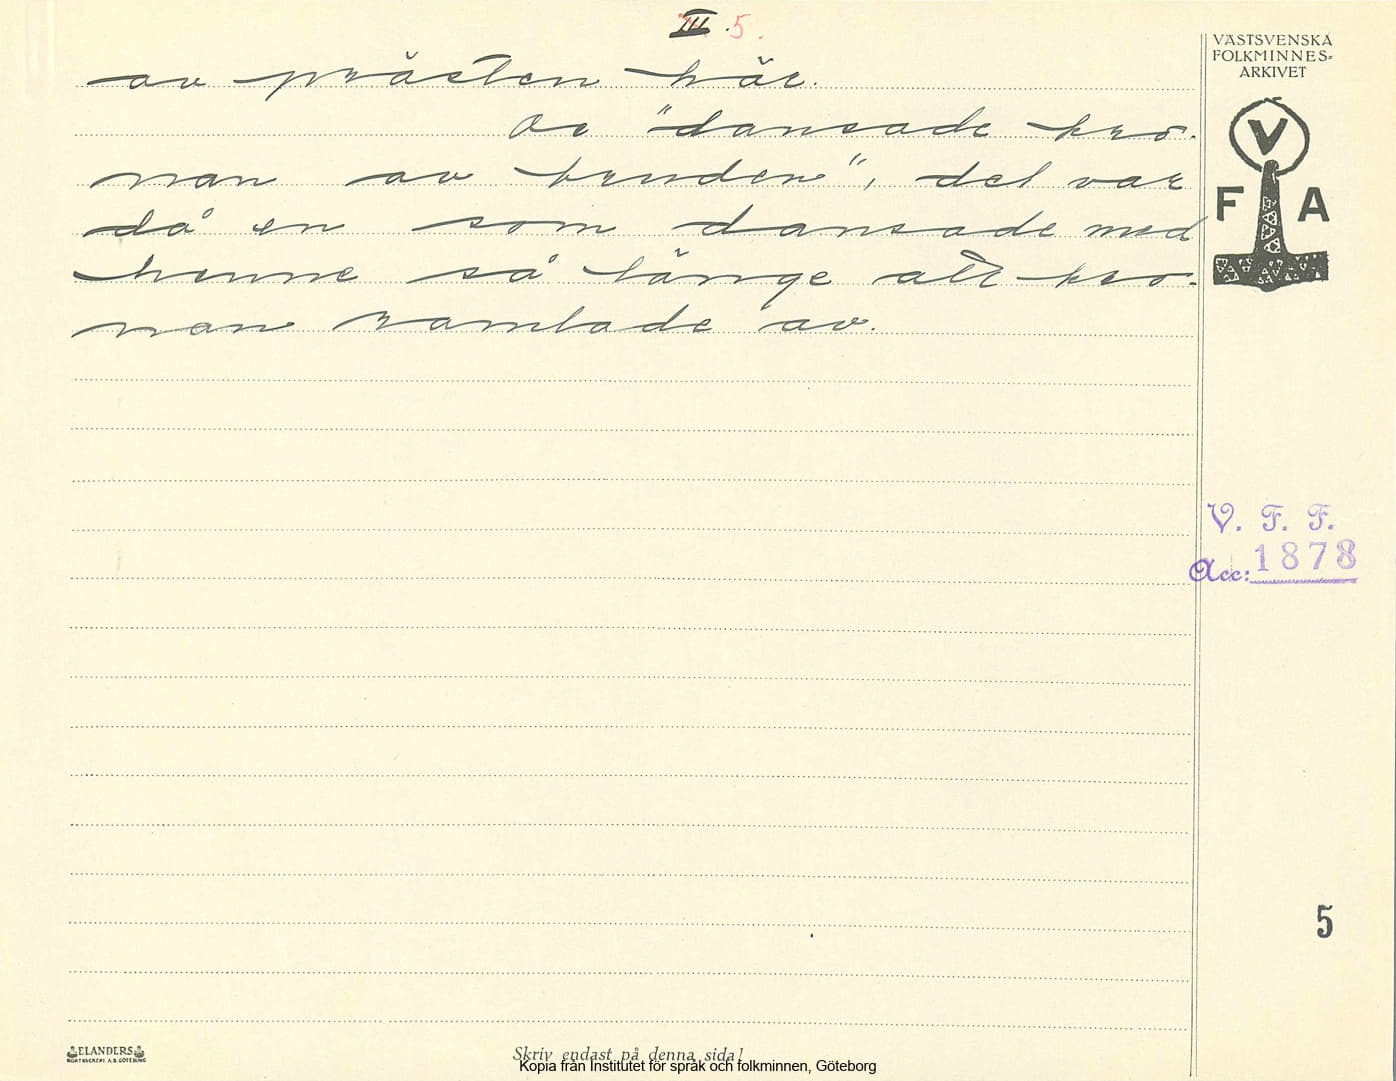 III. 5.
av prästen här.
Os "dansade kro-
nan av bruden", det var
då en som dansade med
henne så länge att kro-
nan ramlade av.
VÄSTSVENSKA
FOLKMINNES-
ARKIVET
V
F A
V. F. F.
Acc: 1878
5
ELANDERS
Skriv endast på denna sida!
Kopia från Institutet för språk och folkminnen, Göteborg